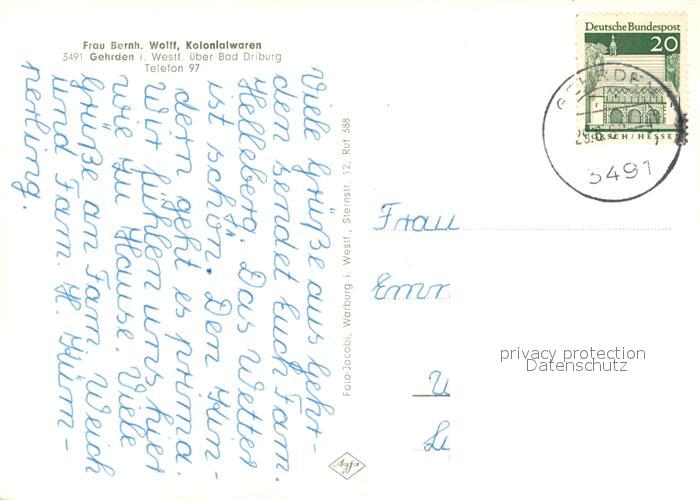 Frau Bernh. Wolff, Kolonialwaren
3491 Gehrden i. Westf. über Bad Driburg
Telefon 97
Viele Grüße aus Gehr-
den sendet Euch Fam.
Helleberg. Das Wetter
ist schön. Den Kin-
dern geht es prima.
Wir fühlen uns hier
wie zu Hause. Viele
Grüße an Fam. Weich
und Fam. H.
Foto-Jacobi, Warburg i. Westf., Sternstr. 12, Ruf 388
Agfa
Deutsche Bundespost
20
LORSCH/HESSEN
GEHRDEN
3491
Frau
Emm
privacy protection
Datenschutz